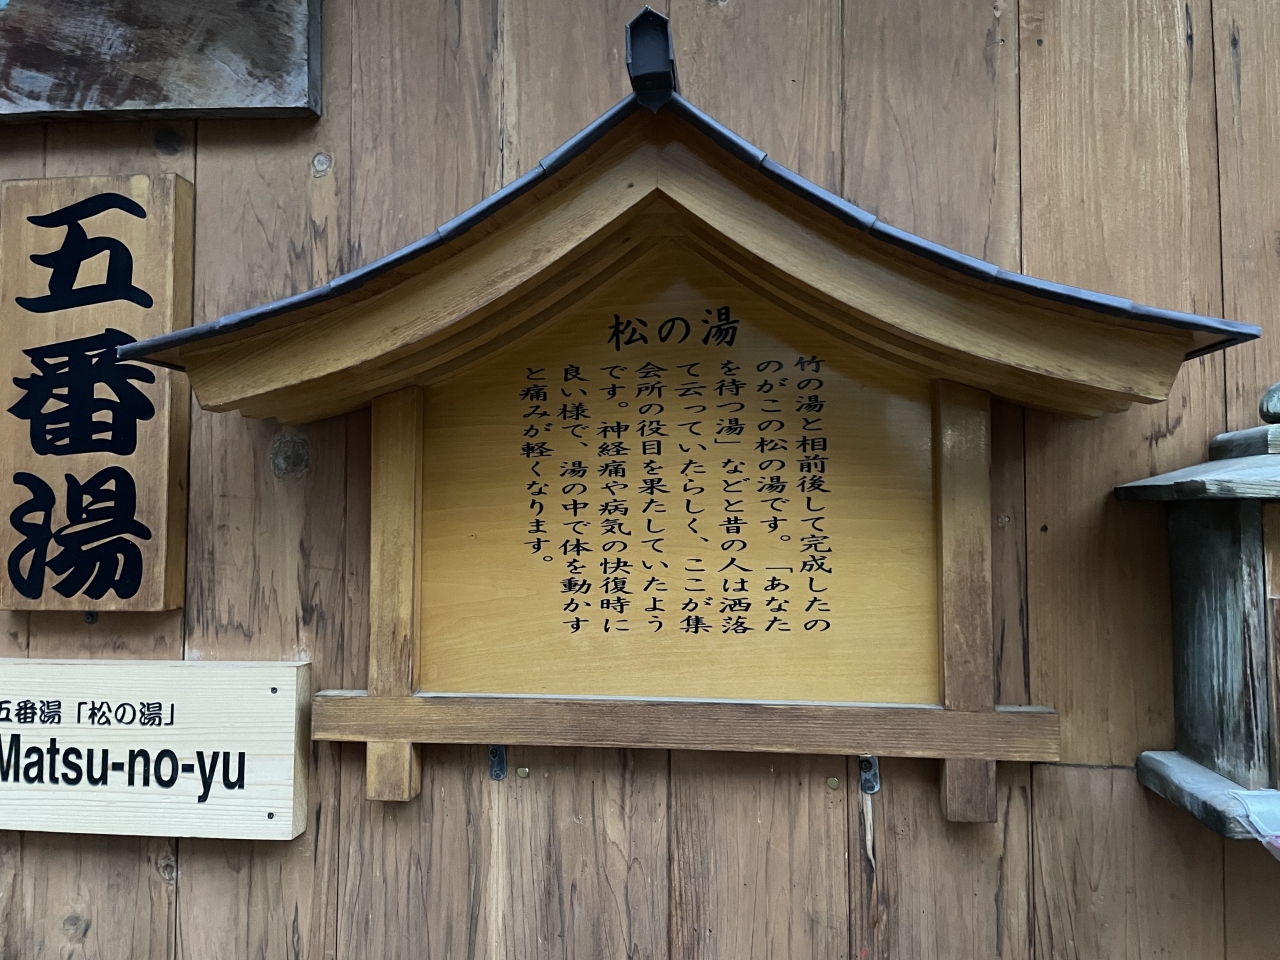 松の湯
竹の湯と相前後して完成したの
のがこの松の湯です。「あなた
を待つ湯」などと昔の人は洒落
て云っていたらしく、ここが集
会所の役目を果たしていたよう
です。神経痛や病気の快復時に
良い様で、湯の中で体を動かす
と痛みが軽くなります。
五番湯
五番湯「松の湯」
Matsu-no-yu